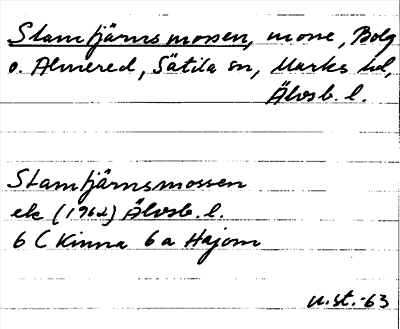 Stamtjärnsmossen, mosse, Bolg
o. Almered, Sätila sn, Marks hd,
Älvsb. l.
Stamtjärnsmossen
ek (1962) Älvsb. l.
6 C Kinna 6 a Hajom
u.st.-63